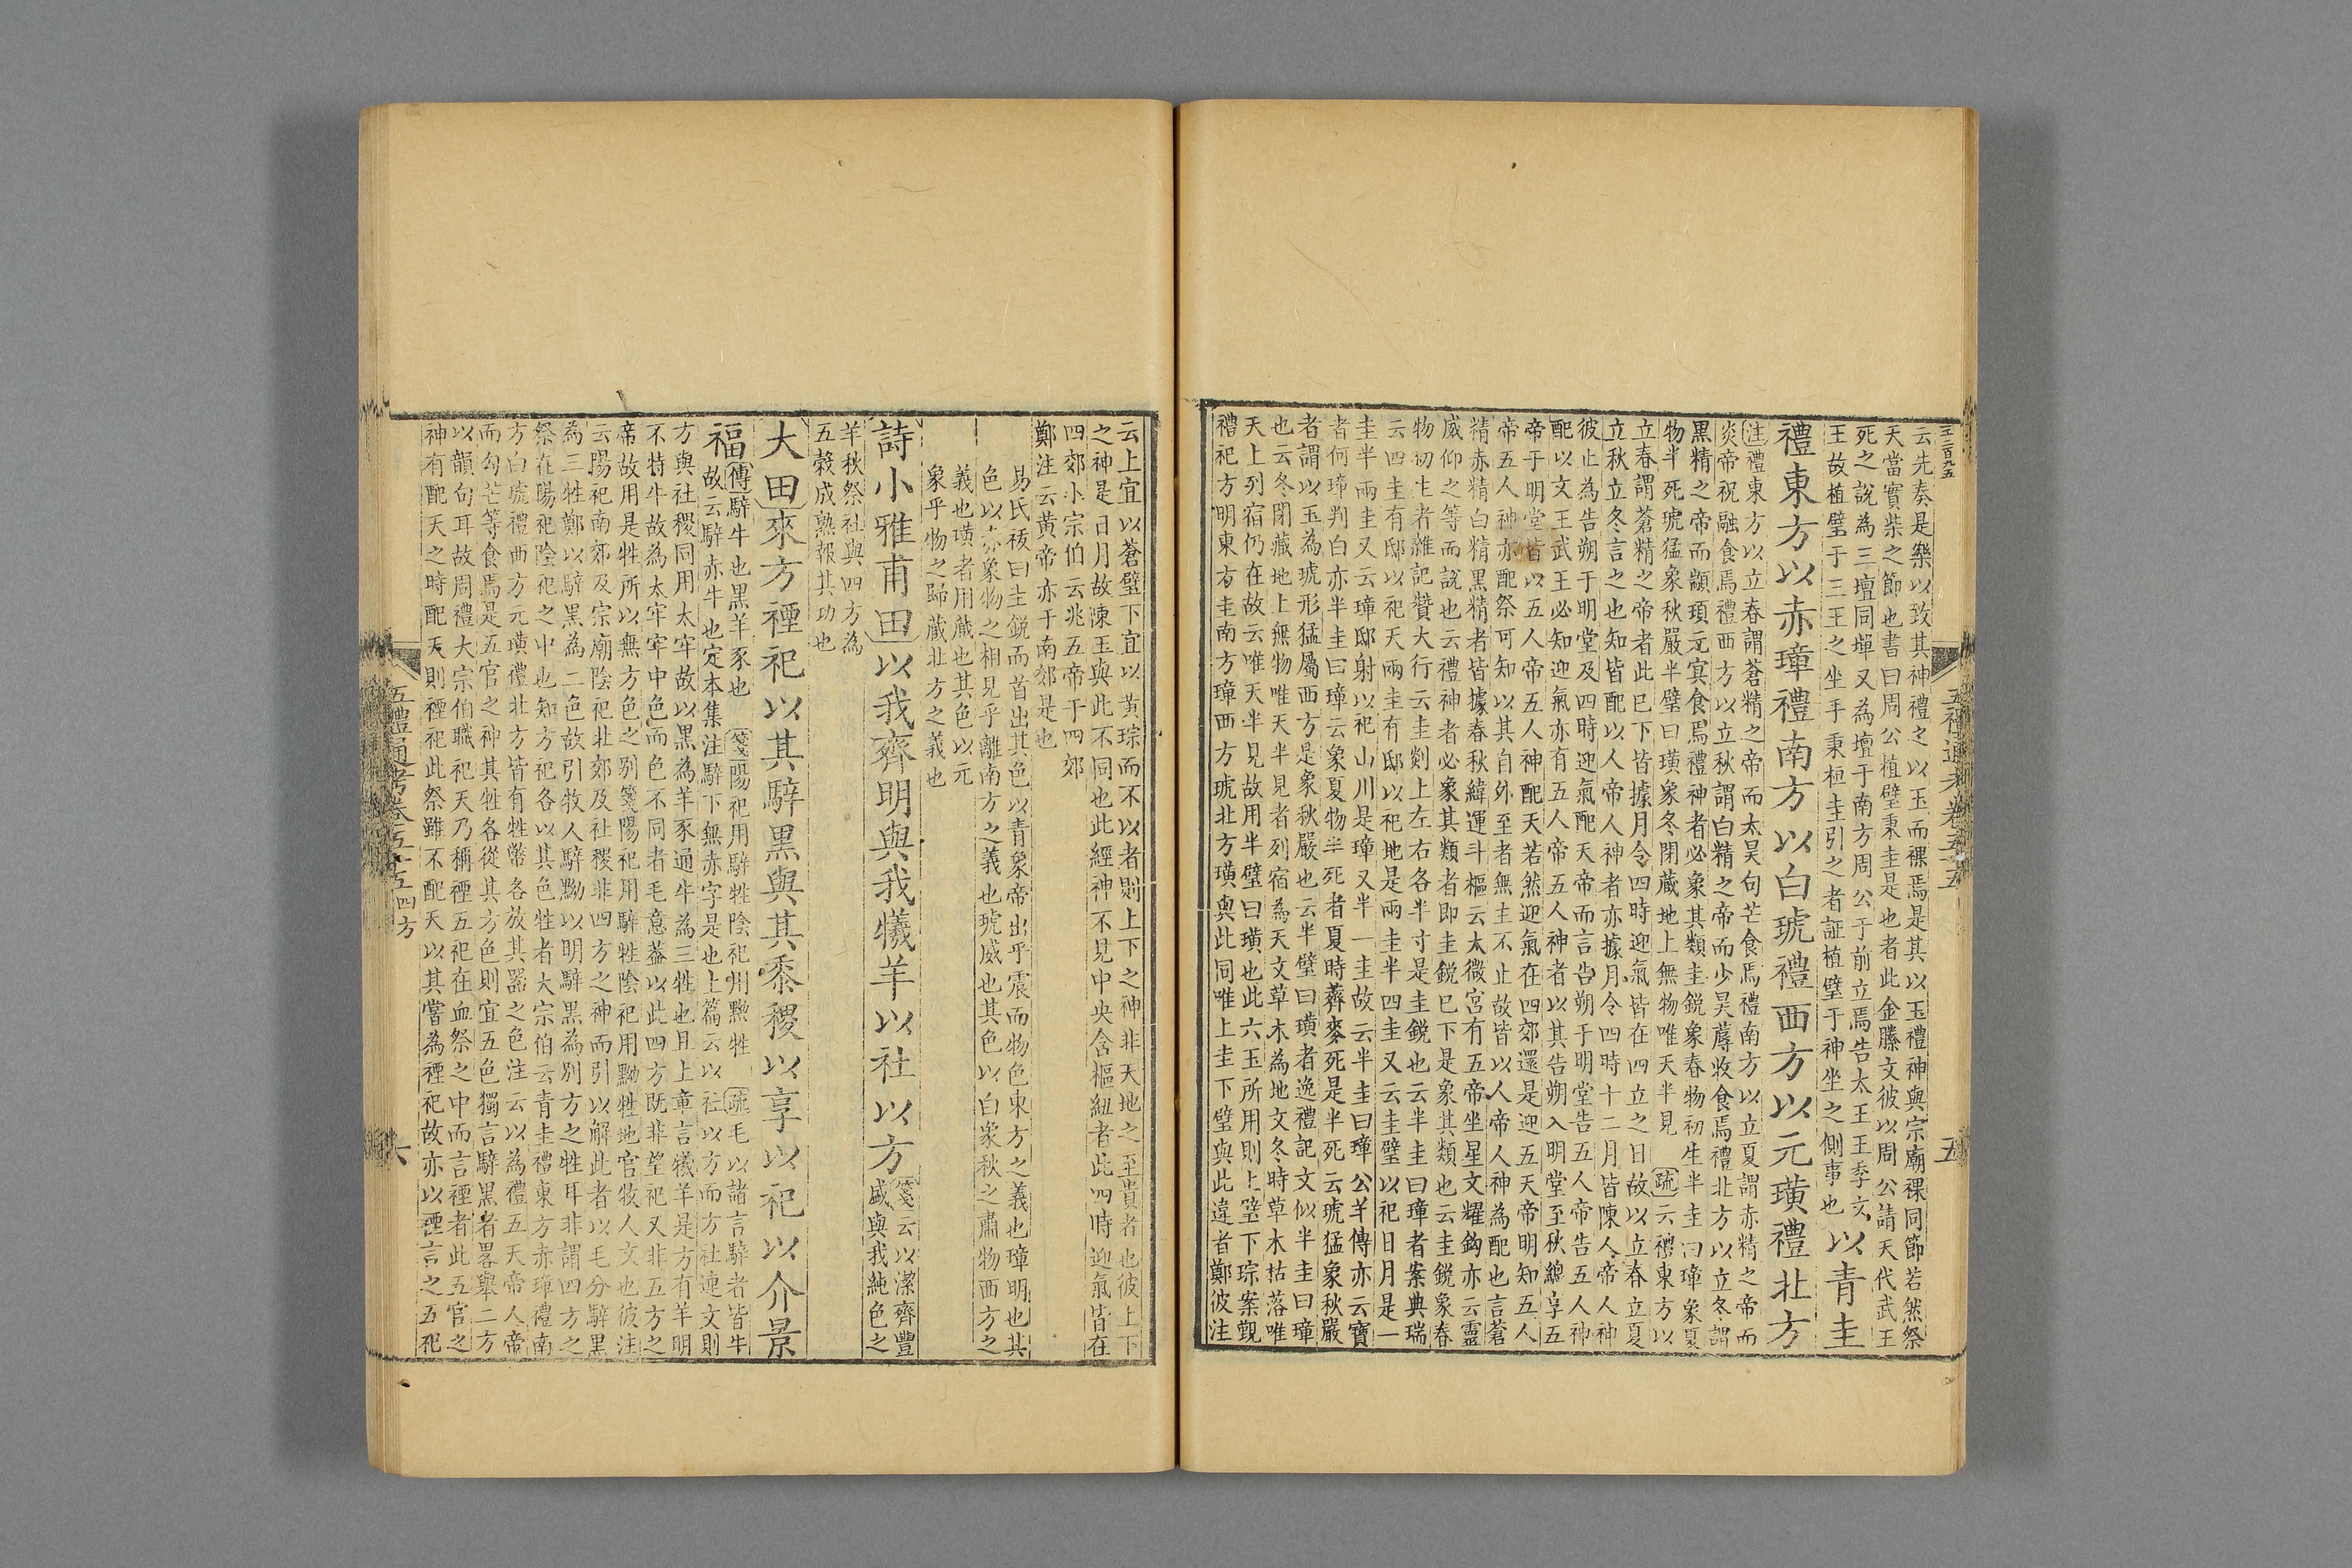 五禮通考卷五十五
五
云先奏是樂以致其神禮之以玉而祼焉是其以玉禮神與宗廟祼同節若然祭
天當實柴之節也書曰周公植璧秉圭是也者此金縢文彼以周公請天代武王
死之說為三壇同墠又為壇于南方周公于前立焉告太王王季文
王故植璧于三王之坐手秉桓圭引之者証植璧于神坐之側事也
以青圭
禮東方以赤璋禮南方以白琥禮西方以元璜禮北方
注禮東方以立春謂蒼精之帝而太昊句芒食焉禮南方以立夏謂赤精之帝而
炎帝祝融食焉禮西方以立秋謂白精之帝而少昊蓐收食焉禮北方以立冬謂
黑精之帝而顓頊元冥食焉禮神者必象其類圭銳象春物初生半圭曰璋象夏
物半死琥猛象秋嚴半璧曰璜象冬閉藏地上無物唯天半見 疏云禮東方以
立春謂蒼精之帝者此已下皆據月令四時迎氣皆在四立之日故以立春立夏
立秋立冬言之也知皆配以人帝人神者亦據月令四時十二月皆陳人帝人神
彼止為告朔于明堂及四時迎氣配天帝而言告朔于明堂告五人帝告五人神
配以文王武王必知迎氣亦有五人帝五人神者以其告朔入明堂至秋總享五
帝于明堂皆以五人帝五人神配天若然迎氣在四郊還是迎五天帝明知五人
帝五人神亦配祭可知以其自外至者無主不止故皆以人帝人神為配也言蒼
精赤精白精黑精者皆據春秋緯運斗樞云太微宮有五帝坐星文耀鉤亦云靈
威仰之等而說也云禮神者必象其類者即圭銳已下是象其類也云圭銳象春
物初生者雜記贊大行云圭剡上左右各半寸是圭銳也云半圭曰璋者案典瑞
云四圭有邸以祀天兩圭有邸以祀地是兩圭半四圭又云圭璧以祀日月是一
圭半兩圭又云璋邸射以祀山川是璋又半一圭故云半圭曰璋公羊傳亦云寶
者何璋判白亦半圭曰璋云象夏物半死者夏時薺麥死是半死云琥猛象秋嚴
者謂以玉為琥形猛屬西方是象秋嚴也云半璧曰璜者逸禮記文似半圭曰璋
也云冬閉藏地上無物唯天半見者列宿為天文草木為地文冬時草木枯落唯
天上列宿仍在故云唯天半見故用半璧曰璜也此六玉所用則上璧下琮案覲
禮祀方明東方圭南方璋西方琥北方璜與此同唯上圭下璧與此違者鄭彼注
云上宜以蒼璧下宜以黃琮而不以者則上下之神非天地之至貴者也彼上下
之神是日月故陳玉與此不同也此經神不見中央含樞紐者此四時迎氣皆在
四郊小宗伯云兆五帝于四郊
鄭注云黃帝亦于南郊是也
易氏祓曰圭銳而首出其色以青象帝出乎震而物色東方之義也璋明也其
色以赤象物之相見乎離南方之義也琥威也其色以白象秋之肅物西方之
義也璜者用藏也其色以元
象乎物之歸藏北方之義也
詩小雅甫田以我齊明與我犧羊以社以方
箋云以潔齊豐
盛與我純色之
羊秋祭社與四方為
五穀成熟報其功也
大田來方禋祀以其騂黑與其黍稷以享以祀以介景
福
傳騂牛也黑羊豕也 箋陽祀用騂牲陰祀用黝牲 疏毛以諸言騂者皆牛
故云騂赤牛也定本集注騂下無赤字是也上篇云以社以方而方社連文則
方與社稷同用太牢故以黑為羊豕通牛為三牲也且上章言犧羊是方有羊明
不特牛故為太牢牢中色而色不同者毛意葢以此四方既非望祀又非五方之
帝故用是牲所以無方色之別箋陽祀用騂牲陰祀用黝牲地官牧人文也彼注
云陽祀南郊及宗廟陰祀北郊及社稷非四方之神而引以解此者以毛分騂黑
為三牲鄭以騂黑為二色故引牧人騂黝以明騂黑為別方之牲耳非謂四方之
祭在陽祀陰祀之中也知方祀各以其色牲者大宗伯云青圭禮東方赤璋禮南
方白琥禮西方元璜禮北方皆有牲幣各放其器之色注云以為禮五天帝人帝
而勾芒等食焉是五官之神其牲各從其方色則宜五色獨言騂黑者畧舉二方
以韻句耳故周禮大宗伯職祀天乃稱禋五祀在血祭之中而言禋者此五官之
神有配天之時配天則禋祀此祭雖不配天以其嘗為禋祀故亦以禋言之五祀
五禮通考卷五十五 四方
六